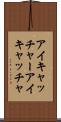 アイキャッ
チャーアイ
キャッチャ